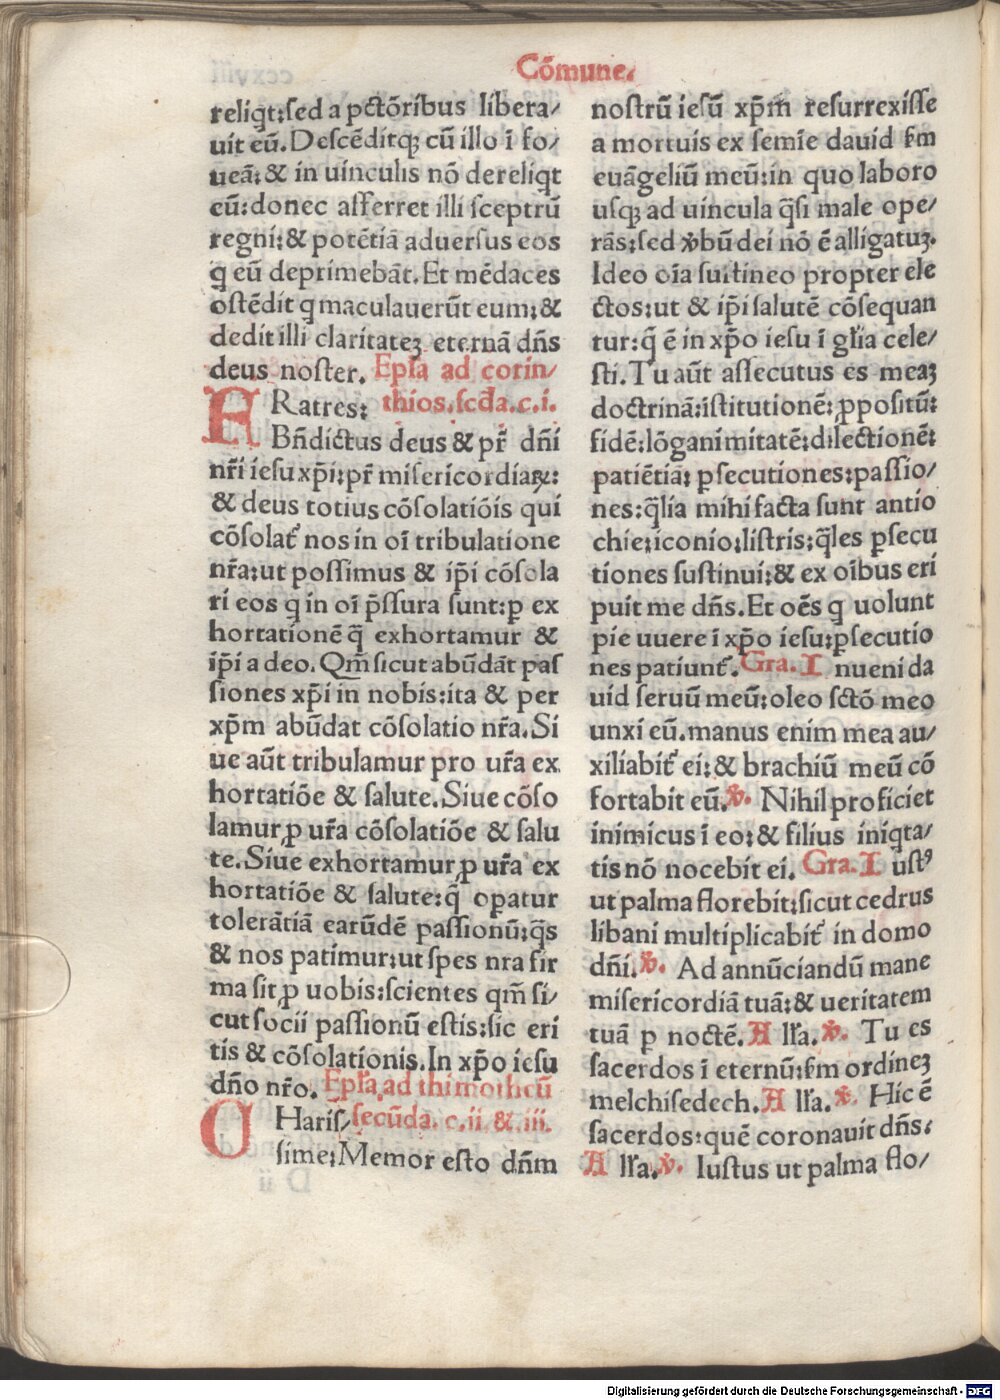 Cõmune.
reliqt:sed a pctõribus libera/
uit eũ.Descẽditqʒ cũ illo ĩ fo/
ueã:& in uinculis nõ dereliqt
eũ:donec afferret illi sceptrũ
regni:& potẽtiã aduersus eos
q̃ eũ deprimebãt.Et mẽdaces
ostẽdit q̃ maculauerũt eum:&
dedit illi claritateʒ eternã dñs
deus noster. Epl̃a ad corin/
FRatres: thios.scďa.c.i.
Bñdictus deus & pr̃ dñi
nr̃i iesu xp̃i:pr̃ misericordiaꝝ:
& deus totius cõsolatiõis qui
cõsolat᷑ nos in oĩ tribulatione
nr̃a:ut possimus & ip̃i cõsola
ri eos q̃ in oĩ p̃ssura sunt:ꝑ ex
hortationẽ q̃ exhortamur &
ip̃i a deo.Qm̃ sicut abũdãt pas
siones xp̃i in nobis:ita & per
xp̃m abũdat cõsolatio nr̃a.Si
ue aũt tribulamur pro ur̃a ex
hortatiõe & salute.Siue cõso
lamur ꝓ ur̃a cõsolatiõe & salu
te.Siue exhortamur ꝓ ur̃a ex
hortatiõe & salute:q̃ opatur
tolerãtiã earũdẽ passionũ:q̃s
& nos patimur:ut spes nra fir
ma sit ꝓ uobis:scientes qm̃ si/
cut socii passionũ estis:sic eri
tis & cõsolationis.In xp̃o iesu
dño nr̃o. Epl̃a ad thimotheũ
CHaris/ secũda. c.ii. & .iii.
sime:Memor esto dñm
nostrũ iesũ xp̃m resurrexisse
a mortuis ex semĩe dauid ẜm
euãgeliũ meũ:in quo laboro
usqʒ ad uincula q̃si male ope/
rãs:sed v̾bũ dei nõ ẽ alligatuʒ.
Ideo oĩa sustineo propter ele
ctos:ut & ip̃i salutẽ cõsequan
tur:q̃ ẽ in xp̃o iesu ĩ gl̃ia cele/
sti.Tu aũt assecutus es meaʒ
doctrinã:ĩstitutionẽ:ꝓpositũ:
fidẽ:lõganimitatẽ:dilectionẽ:
patiẽtiã: ꝑsecutiones:passio/
nes:q̃lia mihi facta sunt antio
chie:iconio:listris:q̃les ꝑsecu
tiones sustinui:& ex oĩbus eri
puit me dñs.Et oẽs q̃ uolunt
pie uuere ĩ xp̃o iesu:ꝑsecutio
nes patiunt᷑.Gra.I nueni da
uid seruũ meũ:oleo sctõ meo
unxi eũ.manus enim mea au/
xiliabit᷑ ei:& brachiũ meũ cõ
fortabit eũ.v̾. Nihil proficiet
inimicus ĩ eo:& filius iniqta/
tis nõ nocebit ei. Gra.I ustꝰ
ut palma florebit:sicut cedrus
libani multiplicabit᷑ in domo
dñi.v̾. Ad annũciandũ mane
misericordiã tuã:& ueritatem
tuã ꝑ noctẽ.A ll̃a.v̾. Tu es
sacerdos ĩ eternũ:ẜm ordineʒ
melchisedech.A ll̃a.v̾. Hic ẽ
sacerdos:quẽ coronauit dñs:
A ll̃a.v̾. Iustus ut palma flo/
Digitalisierung gefördert durch die Deutsche Forschungsgemeinschaft - DFG